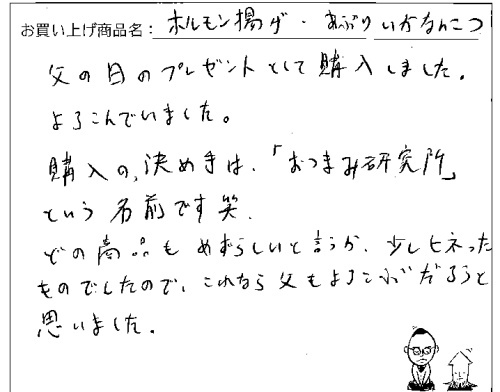 お買い上げ商品名：ホルモン揚げ・あぶりいかなんこつ
父の日のプレゼントとして購入しました。
よろこんでいました。
購入の、決め手は、「おつまみ研究所」
という名前です笑.
どの商品もめずらしいと言うか、少しヒネった
ものでしたので、これなら父もよろこぶだろうと
思いました。